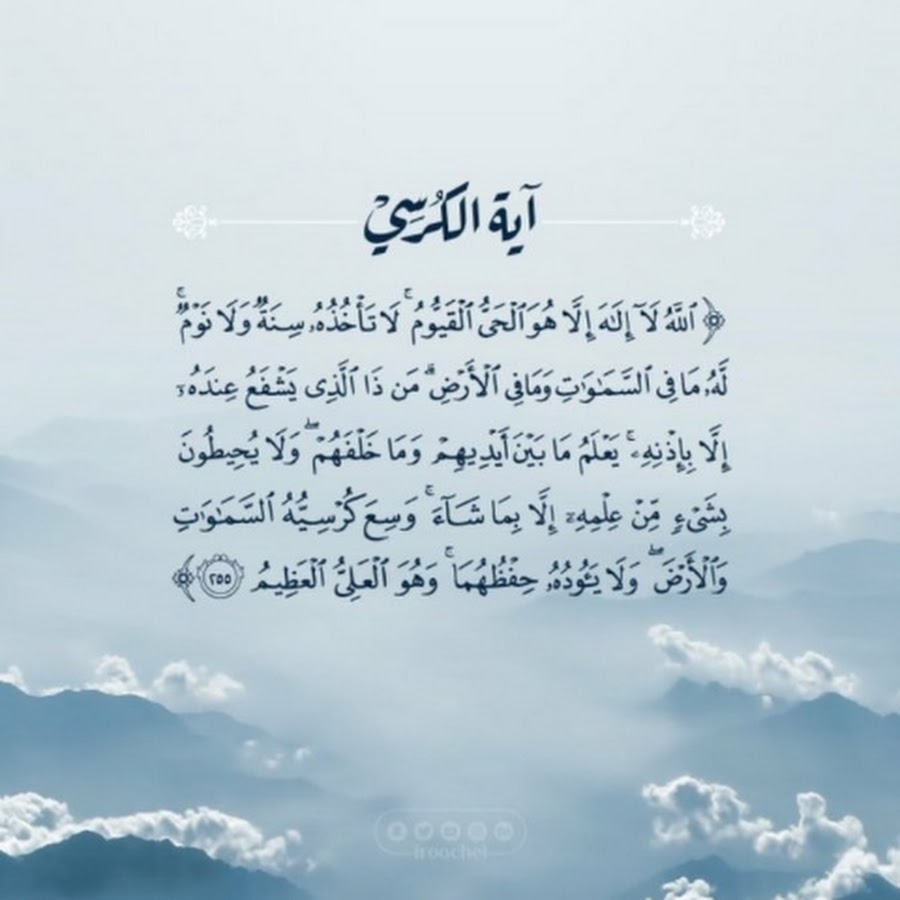 آية الكُرسِي
﴿ ٱللَّهُ لَآ إِلَٰهَ إِلَّا هُوَ ٱلْحَىُّ ٱلْقَيُّومُ ۚ لَا تَأْخُذُهُۥ سِنَةٌ وَلَا نَوْمٌ ۚ
لَّهُۥ مَا فِى ٱلسَّمَٰوَٰتِ وَمَا فِى ٱلْأَرْضِ ۗ مَن ذَا ٱلَّذِى يَشْفَعُ عِندَهُۥٓ
إِلَّا بِإِذْنِهِۦ ۚ يَعْلَمُ مَا بَيْنَ أَيْدِيهِمْ وَمَا خَلْفَهُمْ ۖ وَلَا يُحِيطُونَ
بِشَىْءٍ مِّنْ عِلْمِهِۦٓ إِلَّا بِمَا شَآءَ ۚ وَسِعَ كُرْسِيُّهُ ٱلسَّمَٰوَٰتِ
وَٱلْأَرْضَ ۖ وَلَا يَـُٔودُهُۥ حِفْظُهُمَا ۚ وَهُوَ ٱلْعَلِىُّ ٱلْعَظِيمُ ٢٥٥ ﴾
iroochel